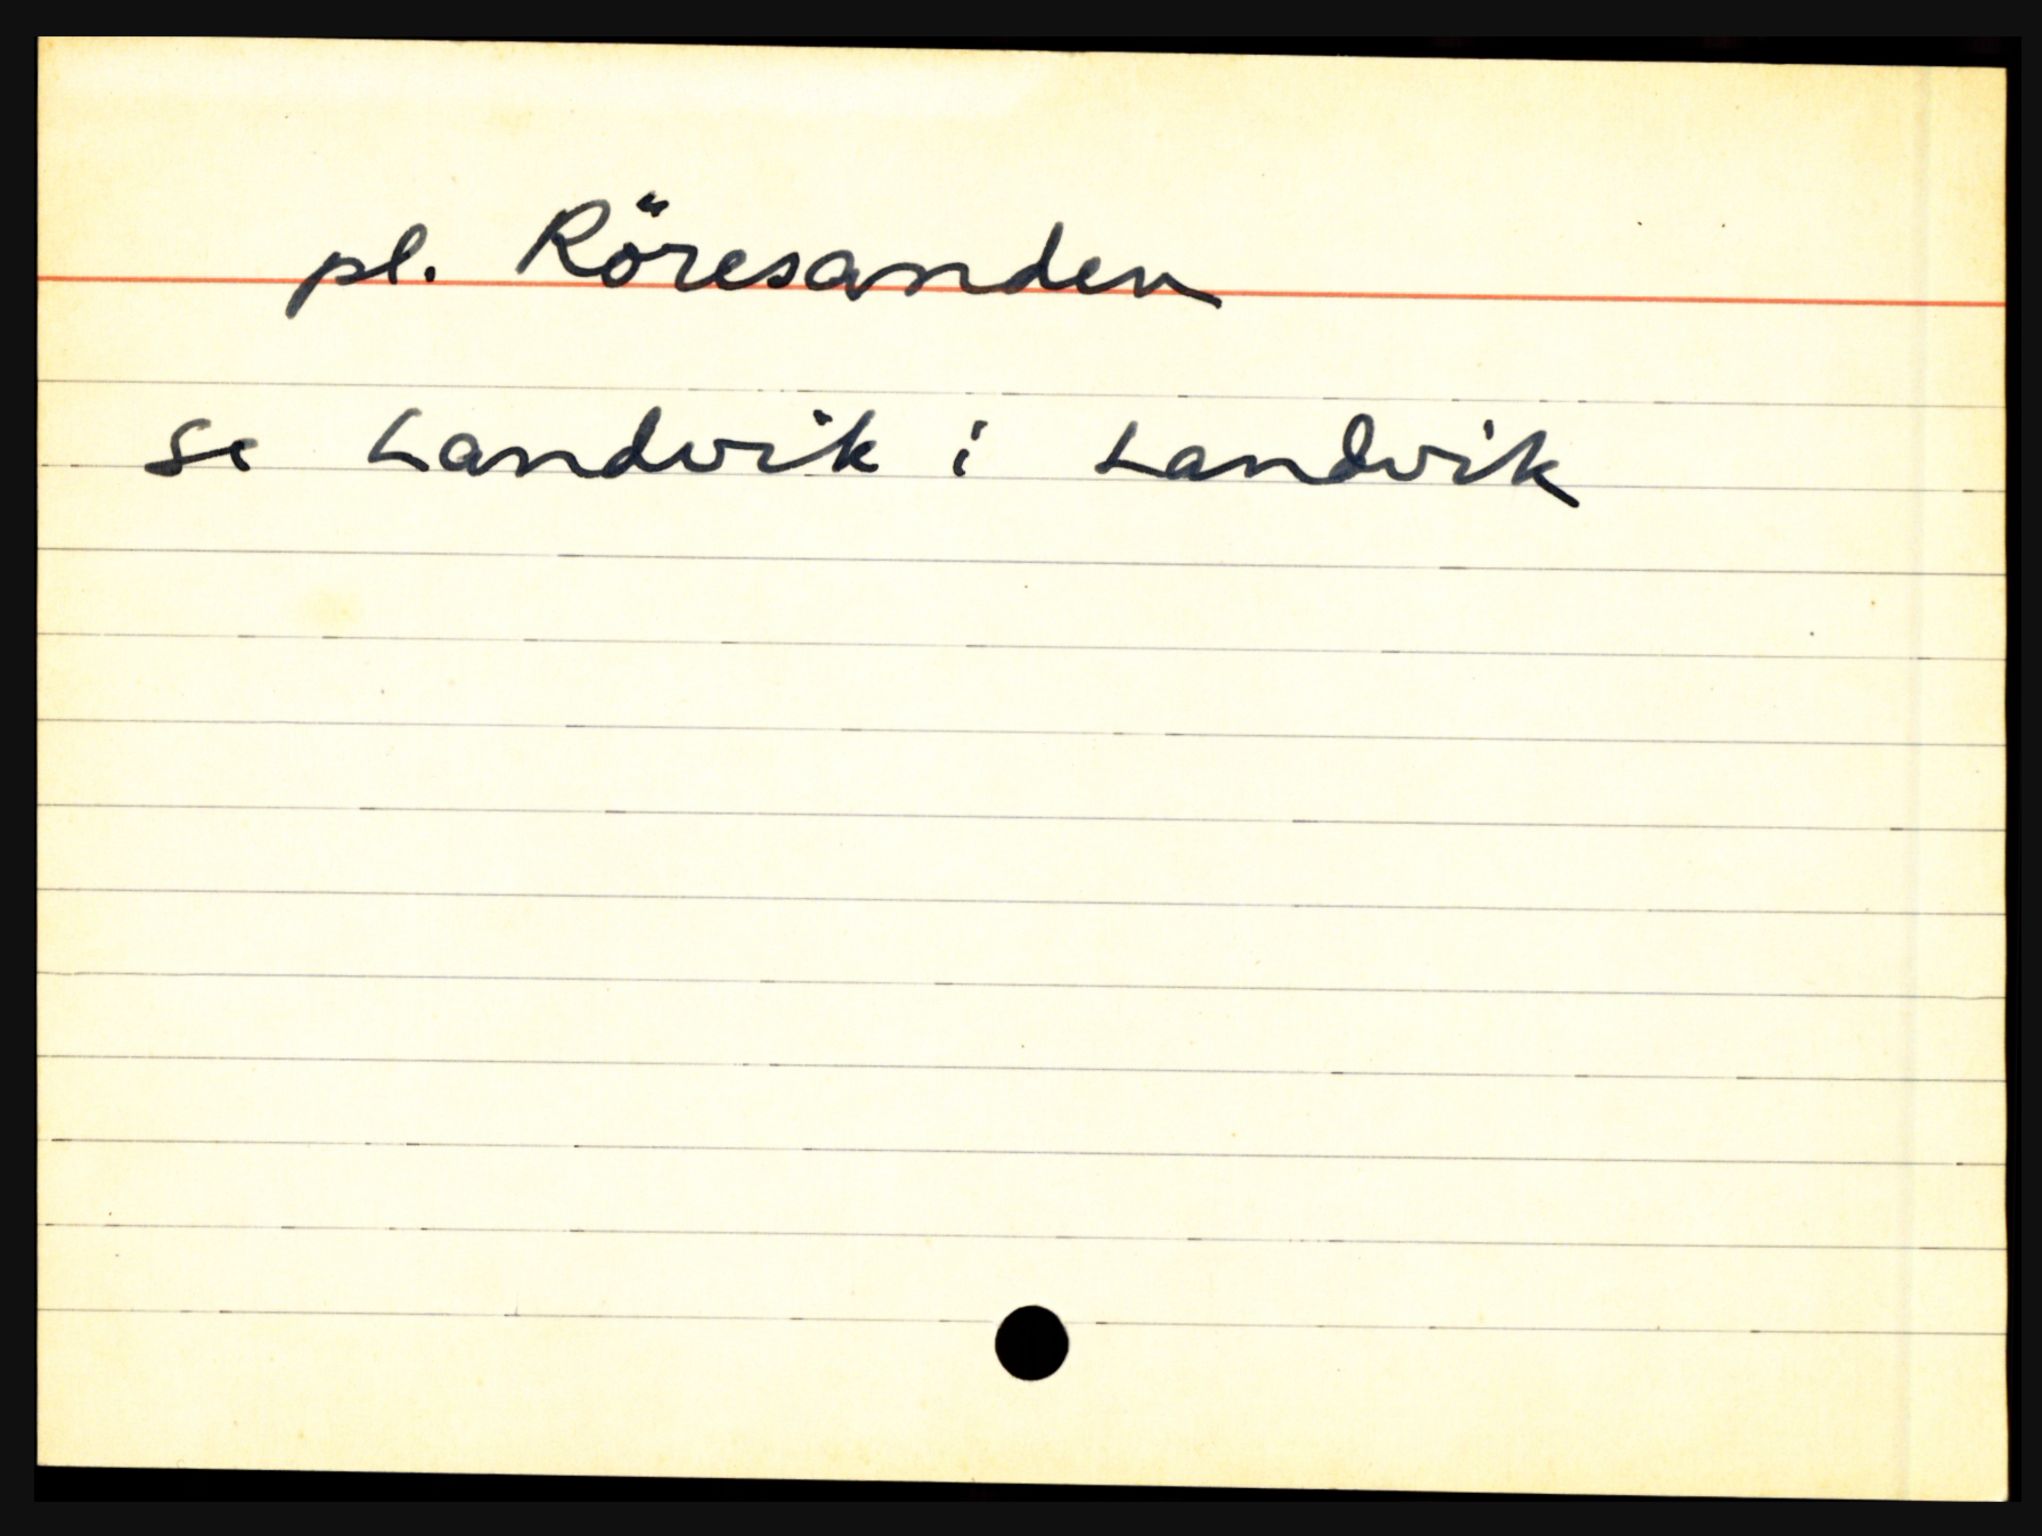 pl. Röresanden
se Landvik i Landvik